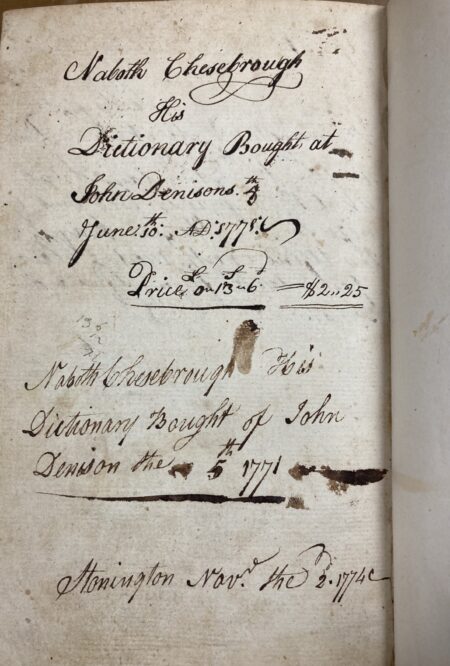 Naboth Chesebrough
His
Dictionary Bought at
John Denisons. 4th
June 10th. AD. 1771.
Price £0 S13 d6 = $2,,25
Naboth Chesebrough His
Dictionary Bought of John
Denison the 5th 1771
Stonington Novr. the 2d. 1774